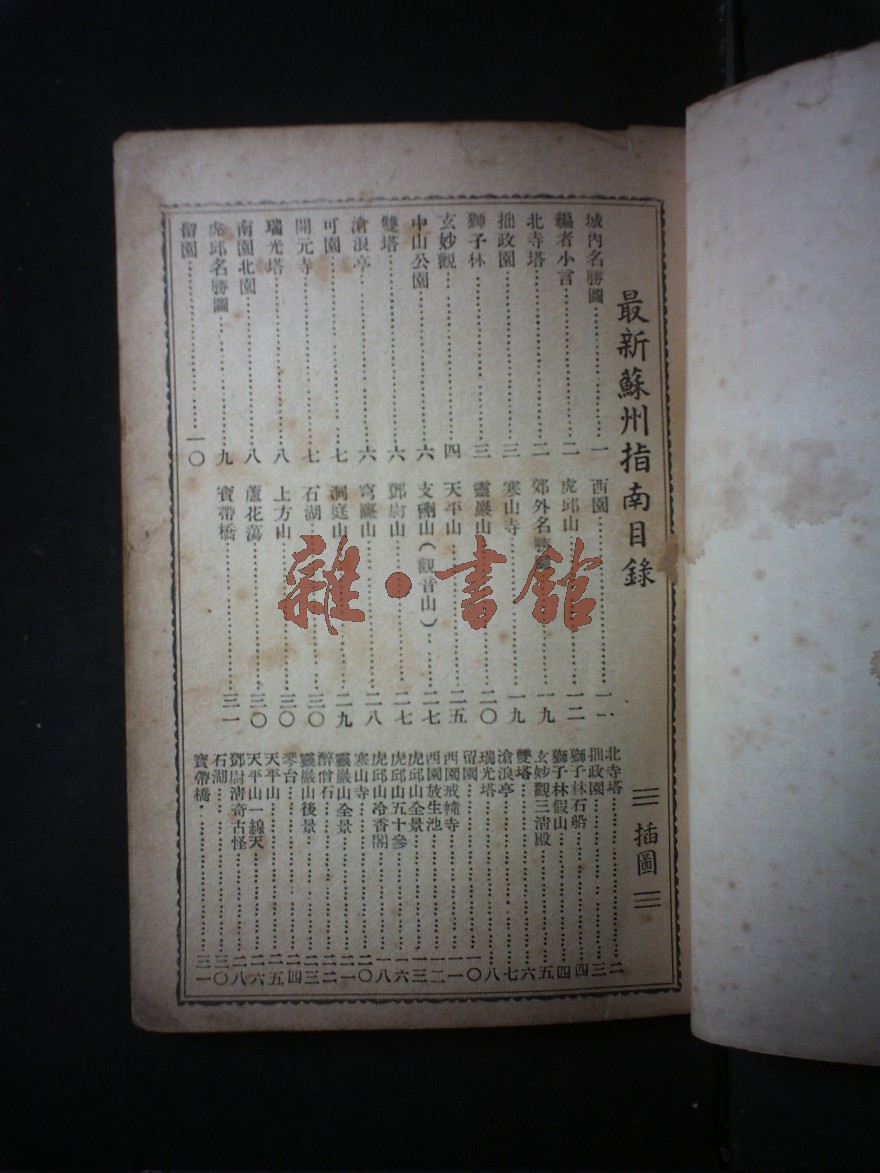 最新蘇州指南目錄
城內名勝圖 一
編者小言 二
北寺塔 二
拙政園 三
獅子林 三
玄妙觀 四
中山公園 六
雙塔 六
滄浪亭 六
可園 七
開元寺 七
瑞光塔 八
南園北園 八
虎邱名勝圖 九
留園 一〇
西園 一一
虎邱山 一二
郊外名勝 一九
寒山寺 一九
靈巖山 二〇
天平山 二五
支硎山(觀音山) 二七
鄧尉山 二七
穹窿山 二八
洞庭山 二九
石湖 三〇
上方山 三〇
蘆花蕩 三〇
寶帶橋 三一
插圖
北寺塔 二
拙政園 三
獅子林石船 四
獅子林假山 四
玄妙觀三清殿 五
雙塔 六
滄浪亭 七
瑞光塔 八
留園 一〇
西園戒幢寺 一一
西園放生池 一二
虎邱山全景 一三
虎邱山五十參 一六
虎邱山冷香閣 一八
寒山寺 二〇
靈巖山全景 二一
醉僧石 二二
靈巖山後景 二三
琴台 二四
天平山 二五
天平山一線天 二六
鄧尉清奇古怪 二八
石湖 三〇
寶帶橋 三一
雜·書館